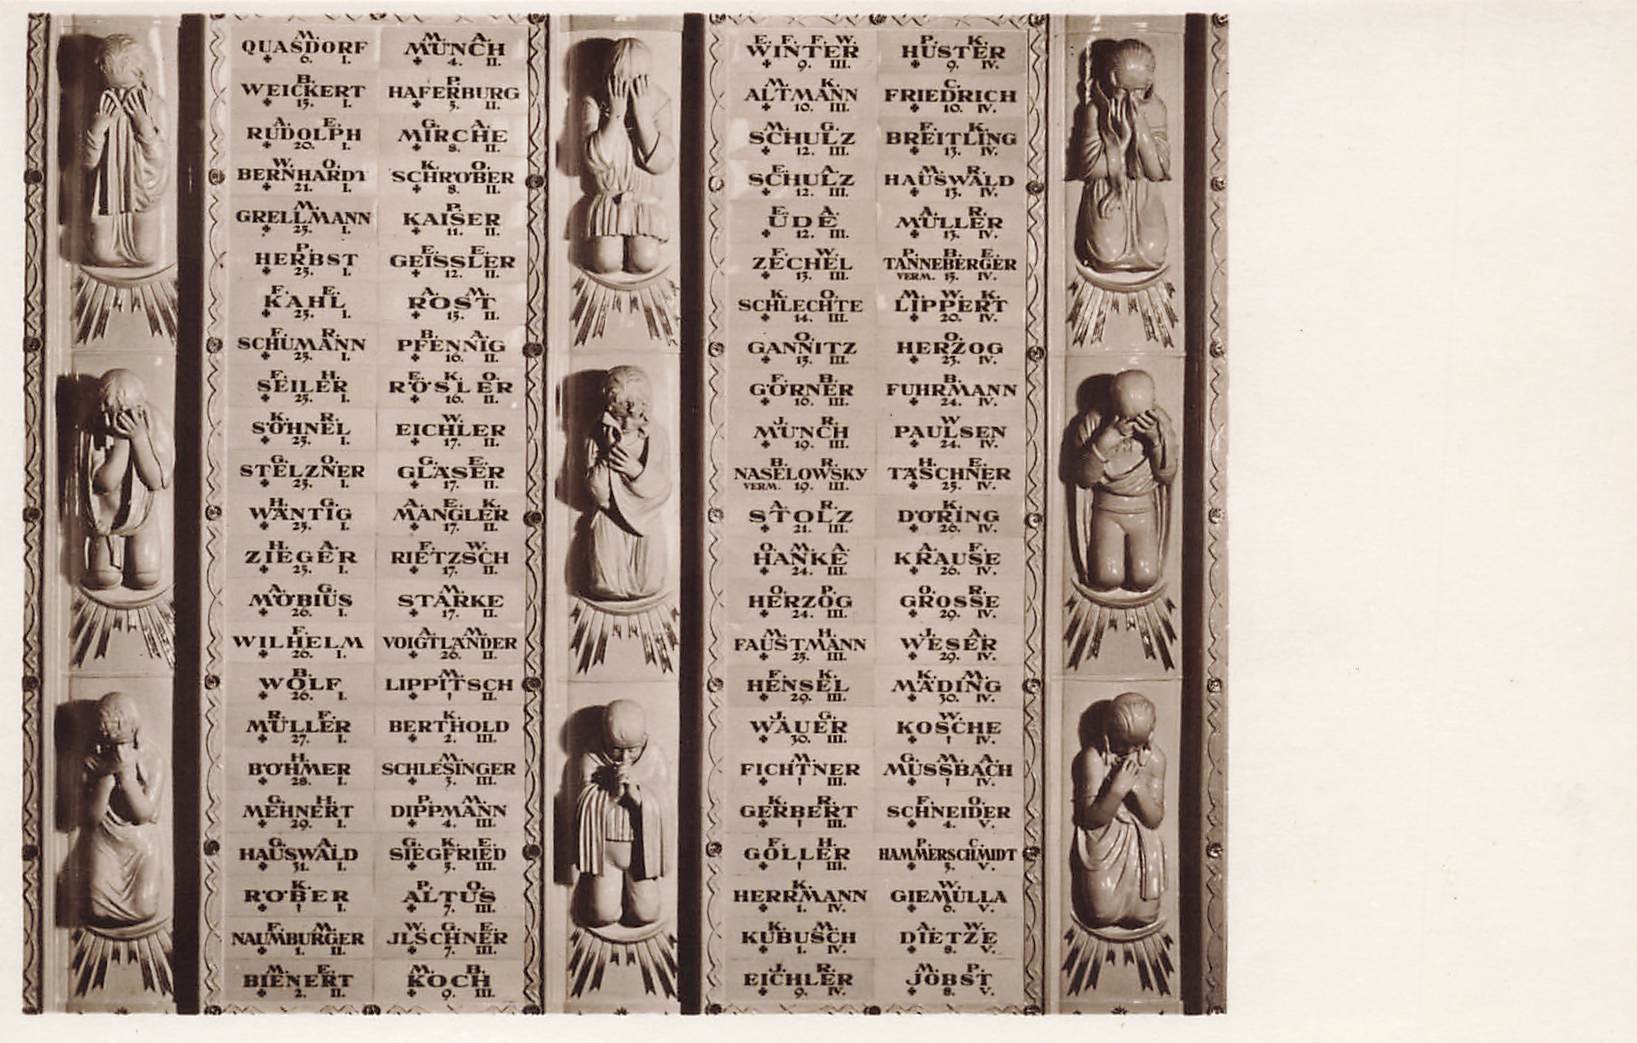 M.
QUASDORF
+ 6. I.
B.
WEICKERT
+ 15. I.
A. E.
RUDOLPH
+ 20. I.
W. O.
BERNHARDT
+ 21. I.
M.
GRELLMANN
+ 25. I.
P.
HERBST
+ 25. I.
F. E.
KAHL
+ 25. I.
F. R.
SCHUMANN
+ 25. I.
F. H.
SEILER
+ 25. I.
K. R.
SÖHNEL
+ 25. I.
G. O.
STELZNER
+ 25. I.
H. G.
WÄNTIG
+ 25. I.
H. A.
ZIEGER
+ 25. I.
A. G.
MÖBIUS
+ 26. I.
F.
WILHELM
+ 26. I.
B.
WOLF
+ 26. I.
R. F.
MÜLLER
+ 27. I.
H.
BÖHMER
+ 28. I.
G. H.
MEHNERT
+ 29. I.
G. A.
HAUSWALD
+ 31. I.
K.
RÖBER
+ 1 I.
F. M.
NAUMBURGER
+ 1. II.
M. E.
BIENERT
+ 2. II.
M. A.
MÜNCH
+ 4. II.
P.
HAFERBURG
+ 5. II.
G. A.
MIRCHE
+ 8. II.
K. O.
SCHRÖBER
+ 8. II.
P.
KAISER
+ 11. II.
E. E.
GEISSLER
+ 12. II.
A. M.
ROST
+ 15. II.
B. A.
PFENNIG
+ 16. II.
E. K. O.
RÖSLER
+ 16. II.
W.
EICHLER
+ 17. II.
G. E.
GLÄSER
+ 17. II.
A. E. K.
MANGLER
+ 17. II.
F. W.
RIETZSCH
+ 17. II.
M.
STARKE
+ 17. II.
A. M.
VOIGTLÄNDER
+ 26. II.
M.
LIPPITSCH
+ 1 II.
K.
BERTHOLD
+ 2. III.
M.
SCHLESINGER
+ 3. III.
P. M.
DIPPMANN
+ 4. III.
G. K. E.
SIEGFRIED
+ 5. III.
P. O.
ALTUS
+ 7. III.
W. G. E.
JLSCHNER
+ 7. III.
M. B.
KOCH
+ 9. III.
E. F. F. W.
WINTER
+ 9. III.
M. K.
ALTMANN
+ 10. III.
M. G.
SCHULZ
+ 12. III.
E. A.
SCHULZ
+ 12. III.
E. A.
UDE
+ 12. III.
F. W.
ZECHEL
+ 13. III.
K. O.
SCHLECHTE
+ 14. III.
O.
GANNITZ
+ 15. III.
F. B.
GÖRNER
+ 16. III.
J. R.
MÜNCH
+ 19. III.
B. R.
NASELOWSKY
VERM. 19. III.
A. R.
STOLZ
+ 21. III.
O. M. A.
HANKE
+ 24. III.
O. P.
HERZOG
+ 24. III.
M. H.
FAUSTMANN
+ 25. III.
F. K.
HENSEL
+ 29. III.
J. G.
WAUER
+ 30. III.
M.
FICHTNER
+ 1 III.
K. R.
GERBERT
+ 1 III.
F. H.
GÖLLER
+ 1 III.
K.
HERRMANN
+ 1. IV.
K. M.
KUBUSCH
+ 1. IV.
J. R.
EICHLER
+ 9. IV.
P. K.
HUSTER
+ 9. IV.
C.
FRIEDRICH
+ 10. IV.
F. K.
BREITLING
+ 13. IV.
M. R.
HAUSWALD
+ 15. IV.
A. R.
MÜLLER
+ 15. IV.
P. B. E.
TANNEBERGER
VERM. 15. IV.
M. W. K.
LIPPERT
+ 20. IV.
O.
HERZOG
+ 23. IV.
B.
FUHRMANN
+ 24. IV.
W
PAULSEN
+ 24. IV.
H. E.
TÄSCHNER
+ 25. IV.
K.
DÖRING
+ 26. IV.
A. F.
KRAUSE
+ 26. IV.
O. R.
GROSSE
+ 29. IV.
J. A.
WESER
+ 29. IV.
K. M.
MÄDING
+ 30. IV.
W.
KOSCHE
+ 1 IV.
G. M. A.
MUSSBACH
+ 1 IV.
F. O.
SCHNEIDER
+ 4. V.
P. C.
HAMMERSCHMIDT
+ 5. V.
W.
GIEMULLA
+ 6. V.
A. W.
DIETZE
+ 8. V.
M. P.
JOBST
+ 8. V.